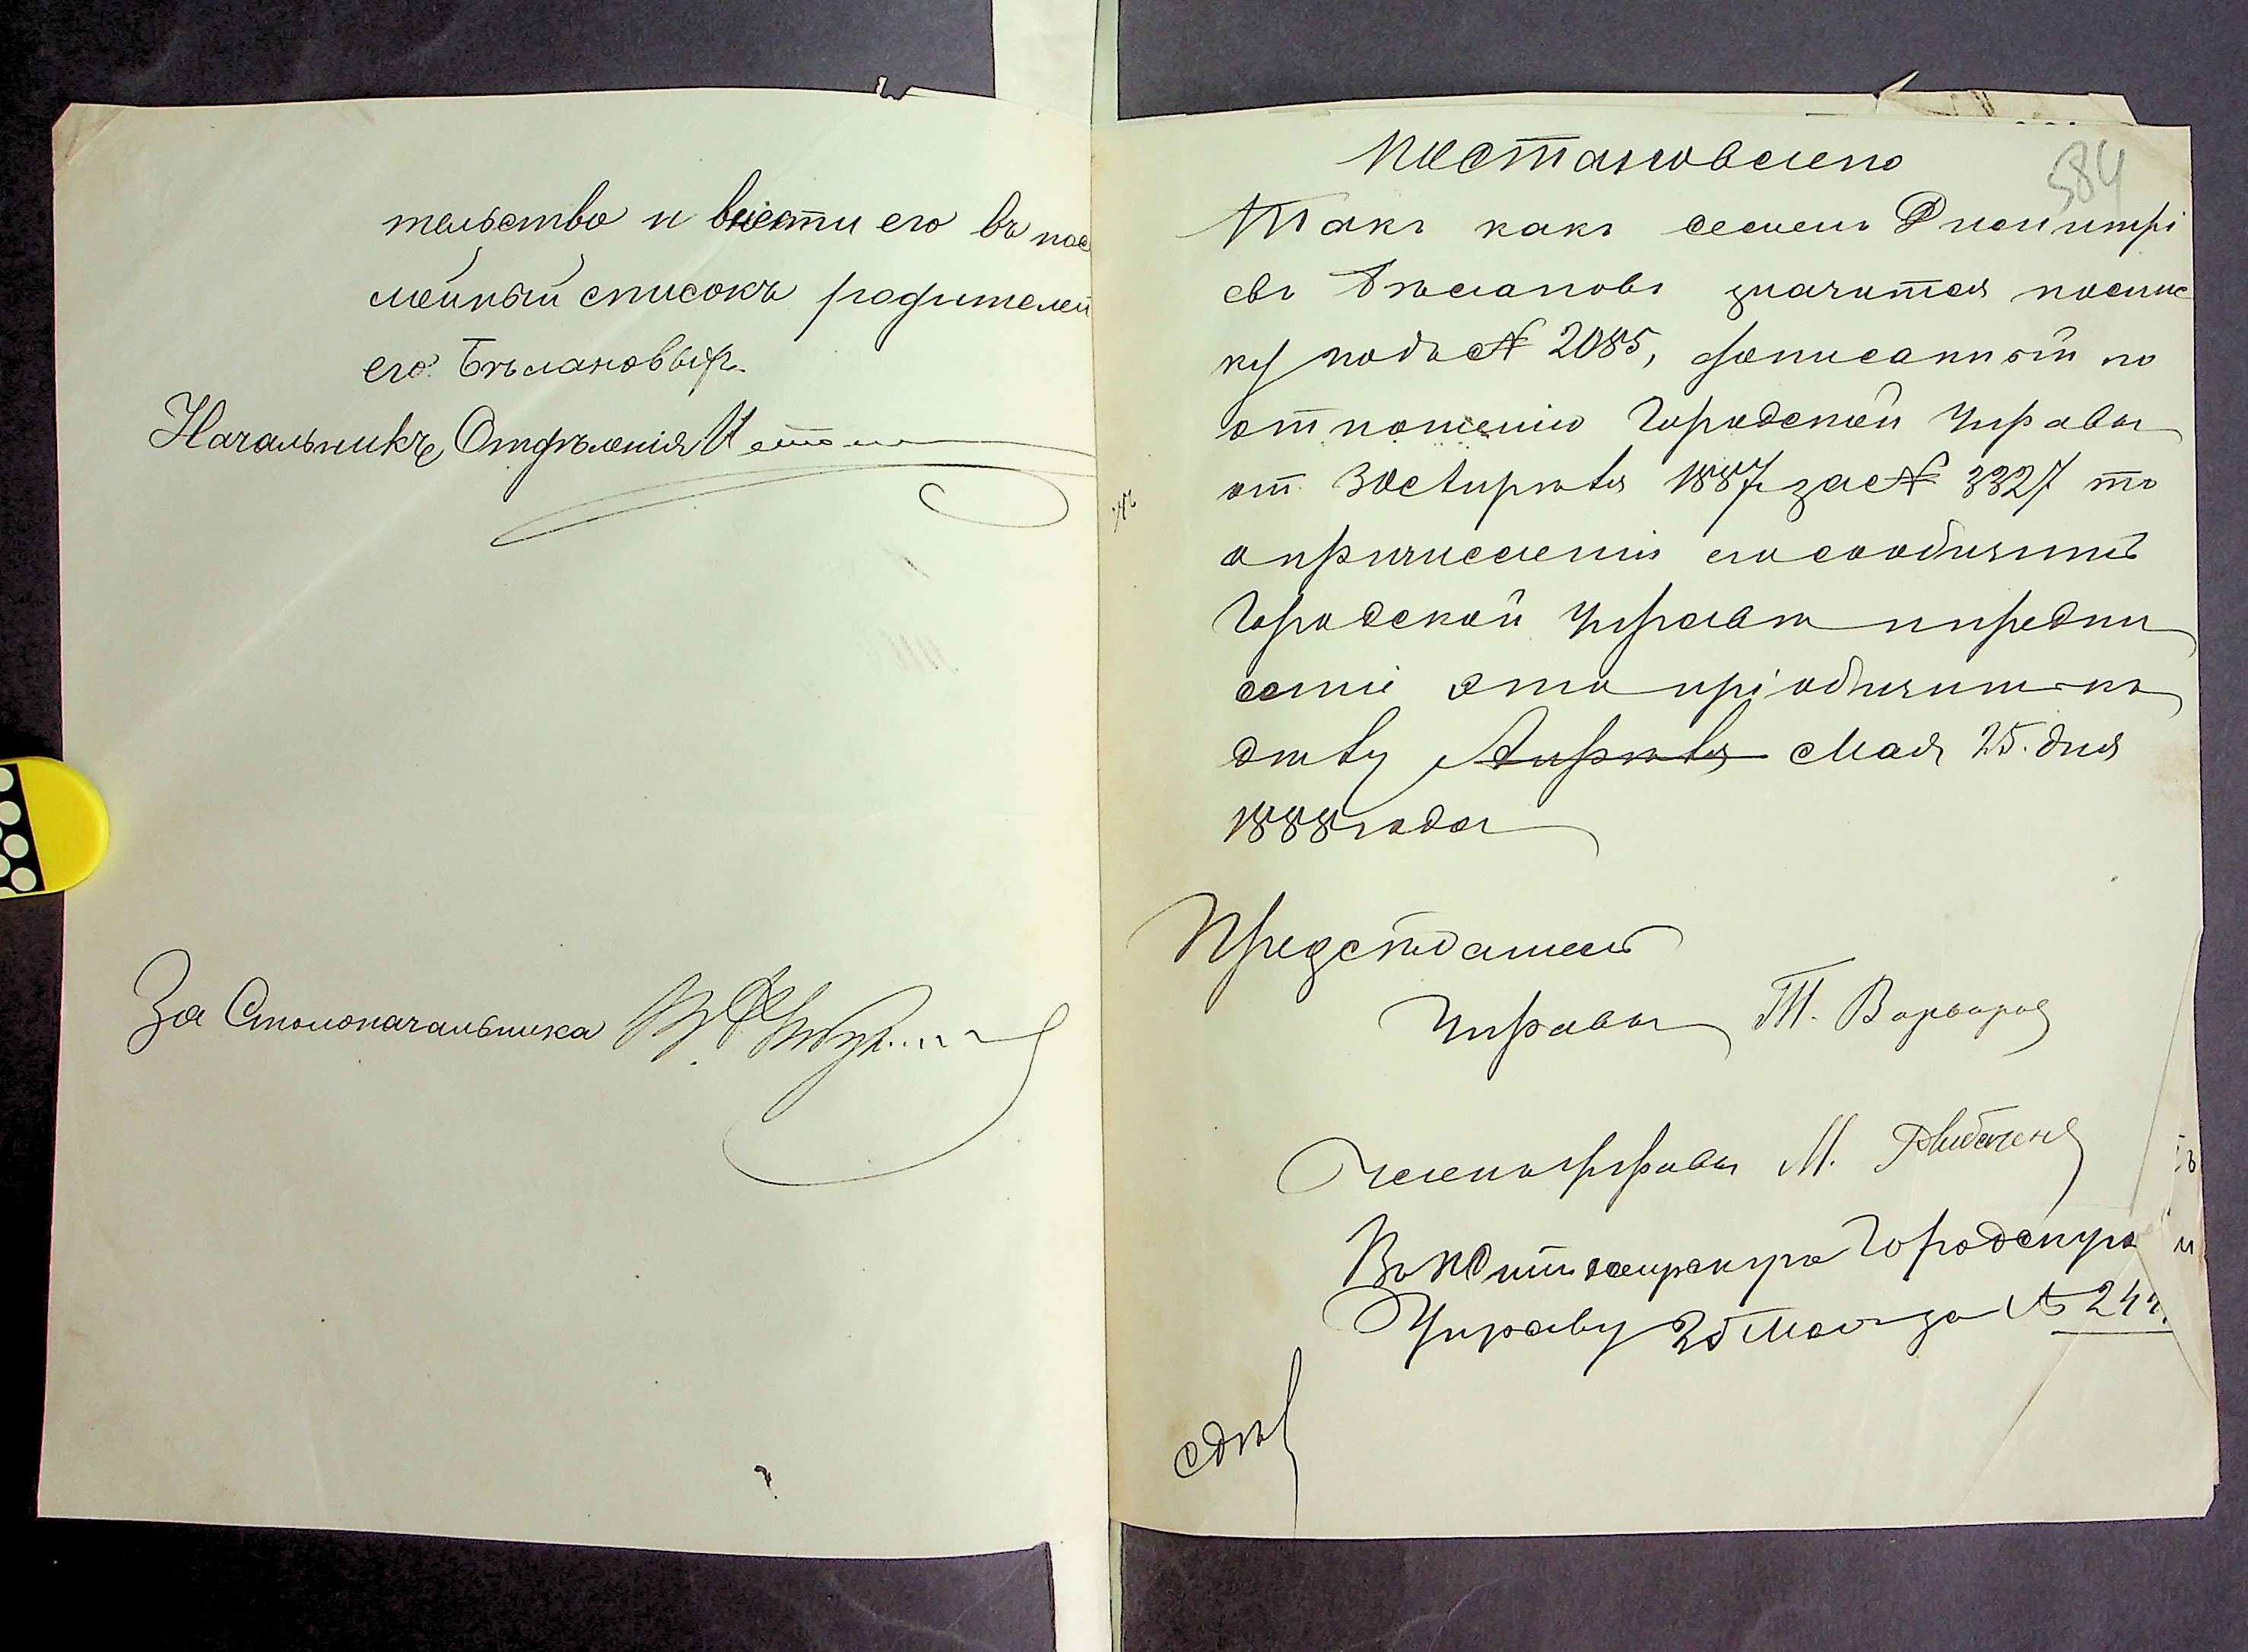 тельство и внести его въ посе
мейный списокъ родителей
его Бѣлановыхъ.
Начальникъ Отдѣленія
За Столоначальника
584
Постановлено
Такъ какъ семенъ Дмитрі
евъ Бѣлановъ значится поспис
ку подъ № 2085, записанный по
отношенію Городской Управы
от 30 Апрѣля 1887 за № 3327 то
опричисленіи его сообщить
Городской Управѣ
это пріобщить къ
дѣлу Апрѣля Мая 25. дня
1888 года
Предсѣдатель
Управы Т.
Членъ Управы М.
Въ Городскую
Управу 25 Мая за № 244